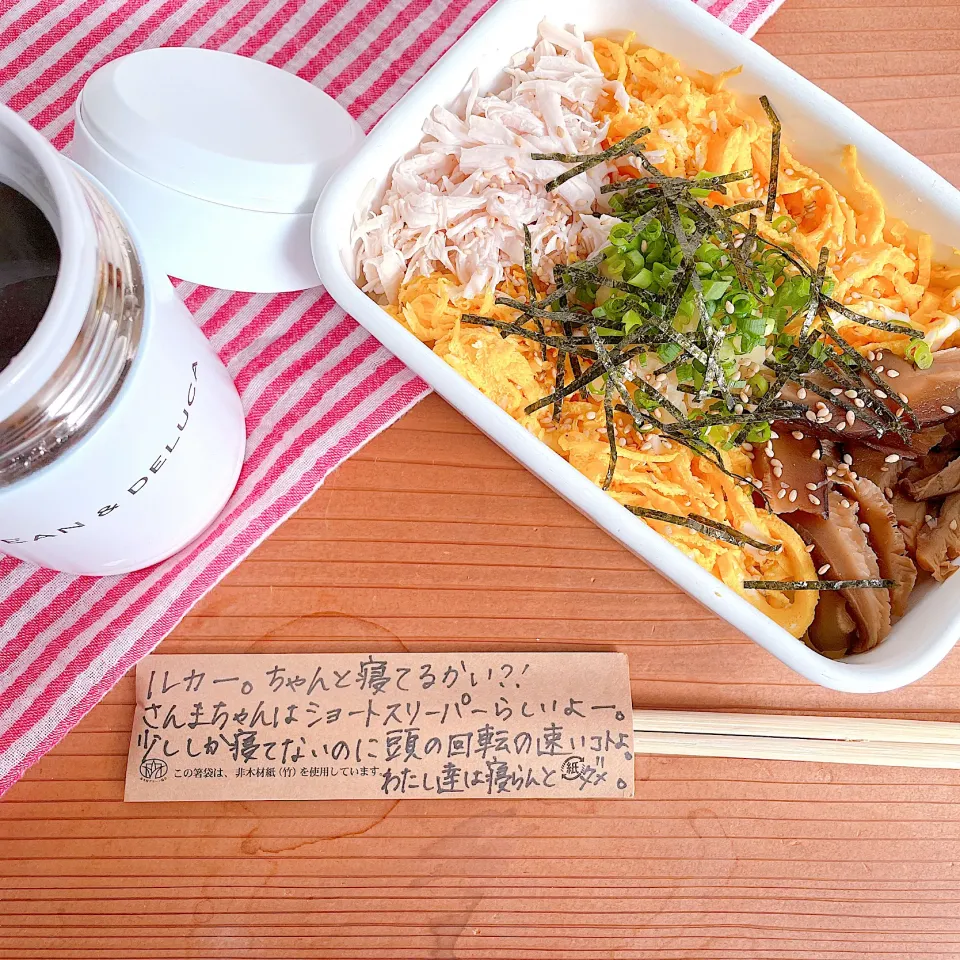 EAN & DELUCA
ルカー。ちゃんと寝てるかい?!
さんまちゃんはショートスリーパーらしいよー。
少ししか寝てないのに頭の回転の速いコトよ。
この箸袋は、非木材紙(竹)を使用しています。
わたし達は寝らんとダメ。
紙